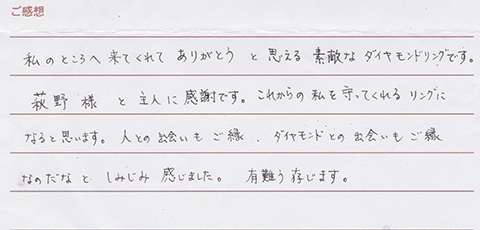 ご感想
私のところへ来てくれて ありがとう と 思える 素敵な ダイヤモンドリングです。
萩野様 と 主人に 感謝です。これからの 私を 守ってくれる リングに
なると思います。人との出会いも ご縁、ダイヤモンドとの 出会いも ご縁
なのだなと しみじみ 感じました。 有難う 存じます。